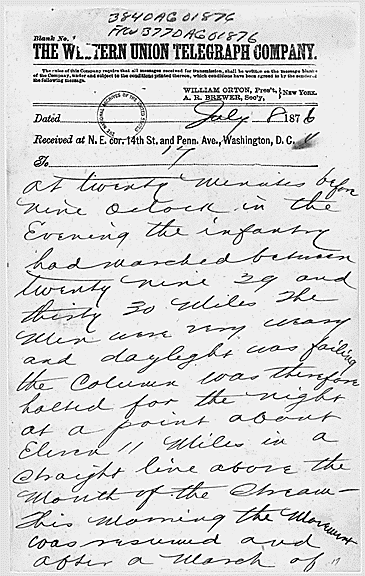 3840 AGO 1876
F/W 3770 AGO 1876
Blank No. 1
THE WESTERN UNION TELEGRAPH COMPANY.
The rules of this Company require that all messages received for transmission, shall be written on the message blanks
of the Company, under and subject to the conditions printed thereon, which conditions have been agreed to by the sender of
the following message.
WILLIAM ORTON, Pres't,
A. R. BREWER, Sec'y, NEW YORK.
Dated July 8 1876
Received at N. E. cor. 14th St. and Penn. Ave., Washington, D. C.
To 17
at twenty minutes before
nine Oclock in the
Evening the infantry
had marched between
twenty nine 29 and
thirty 30 Miles The
Men were very weary
and daylight was failing
the Column was therefore
halted for the night
at a point about
Eleven 11 Miles in a
straight line above the
Mouth of the Stream—
This Morning the Movement
was resumed and
after a March of